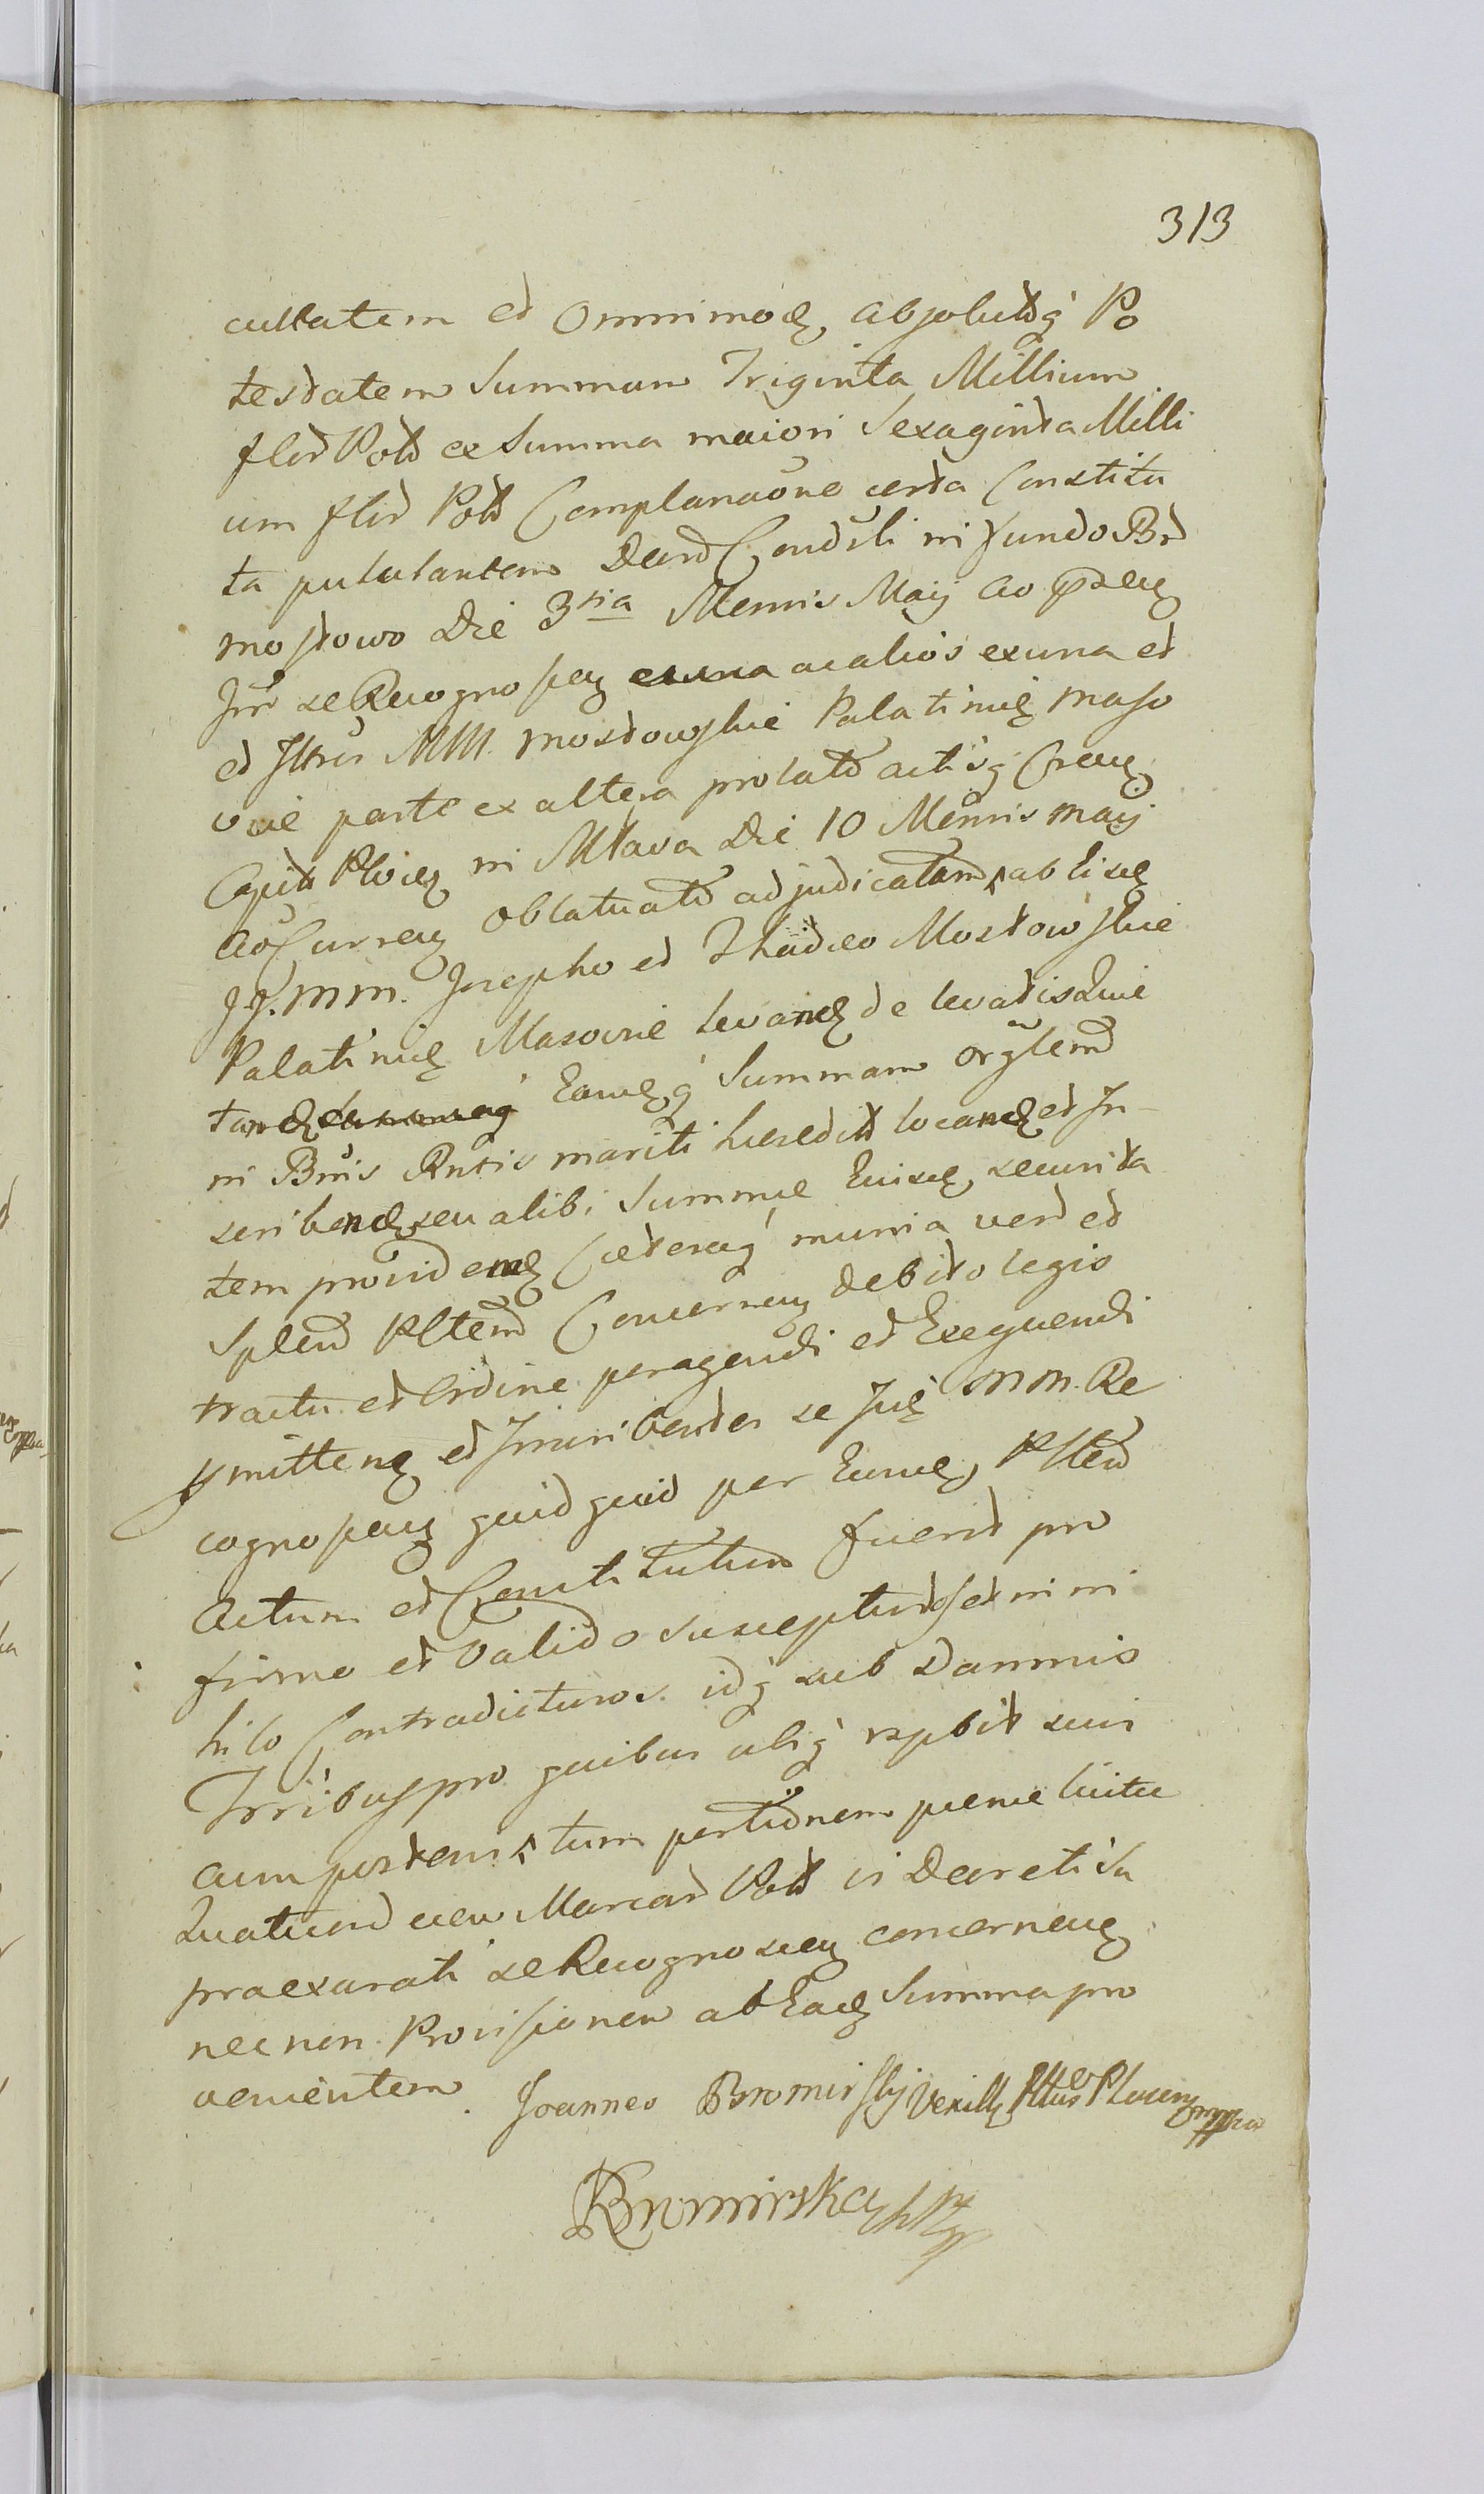 313
cultatem et omnimodą absolutq́ Po
testatem Summam Triginta Millium
flor Polł ex Summa maiori Sexaginta Milli
um flor Polł Complanaõne certa Constitu
ta pululantem Decr Condsli in fundo Br
mostowo Die 3tia Mensis Maij ao
Inr se Recognoscen acalios exuna et
et Iltres MM. Mostowskie Palatinię Maso
viæ parte ex altera prolatt actisq́ Cren
Capit Ploceń in Mława Die 10 Mensis maij
aõ Curren oblatuatt adjudicatam ab iisdę
JJ. mm. Josepho et Thadæo Mostowskie
Palatinię Masoviæ levandę de levatis Quie
tandę Eamdęq́ Summam orglem
in Bnis Rntis mariti hæredit locandę et In-
scribendę seu alibi Summę Eiusdę securita
tem providendę Cæteraq́ munia
Splend Pltem Concernen debito legis
tractu et Ordine peragendi et Exequendi
mittenę et Inscribendo se MM. Re
cognoscen quidquid per Eundę Plten
actum et Constitutum fuerit pro
firmo et valido suscepturos et in ni
hilo Contradicturos idq́ sub Damnis
Trribus pro quibus ubiq́ rspbit suci
cum portem tum portiõnem pænæ luitæ
Quatuord cen Marcar Polł vi Decreti Su
praexarati se Recognoscen concernenę
nec non Provisionem ab Eadę Summa pro
venientem. Joannes Bromirskj Vexill Pltus Plocen mppa
Bromirska